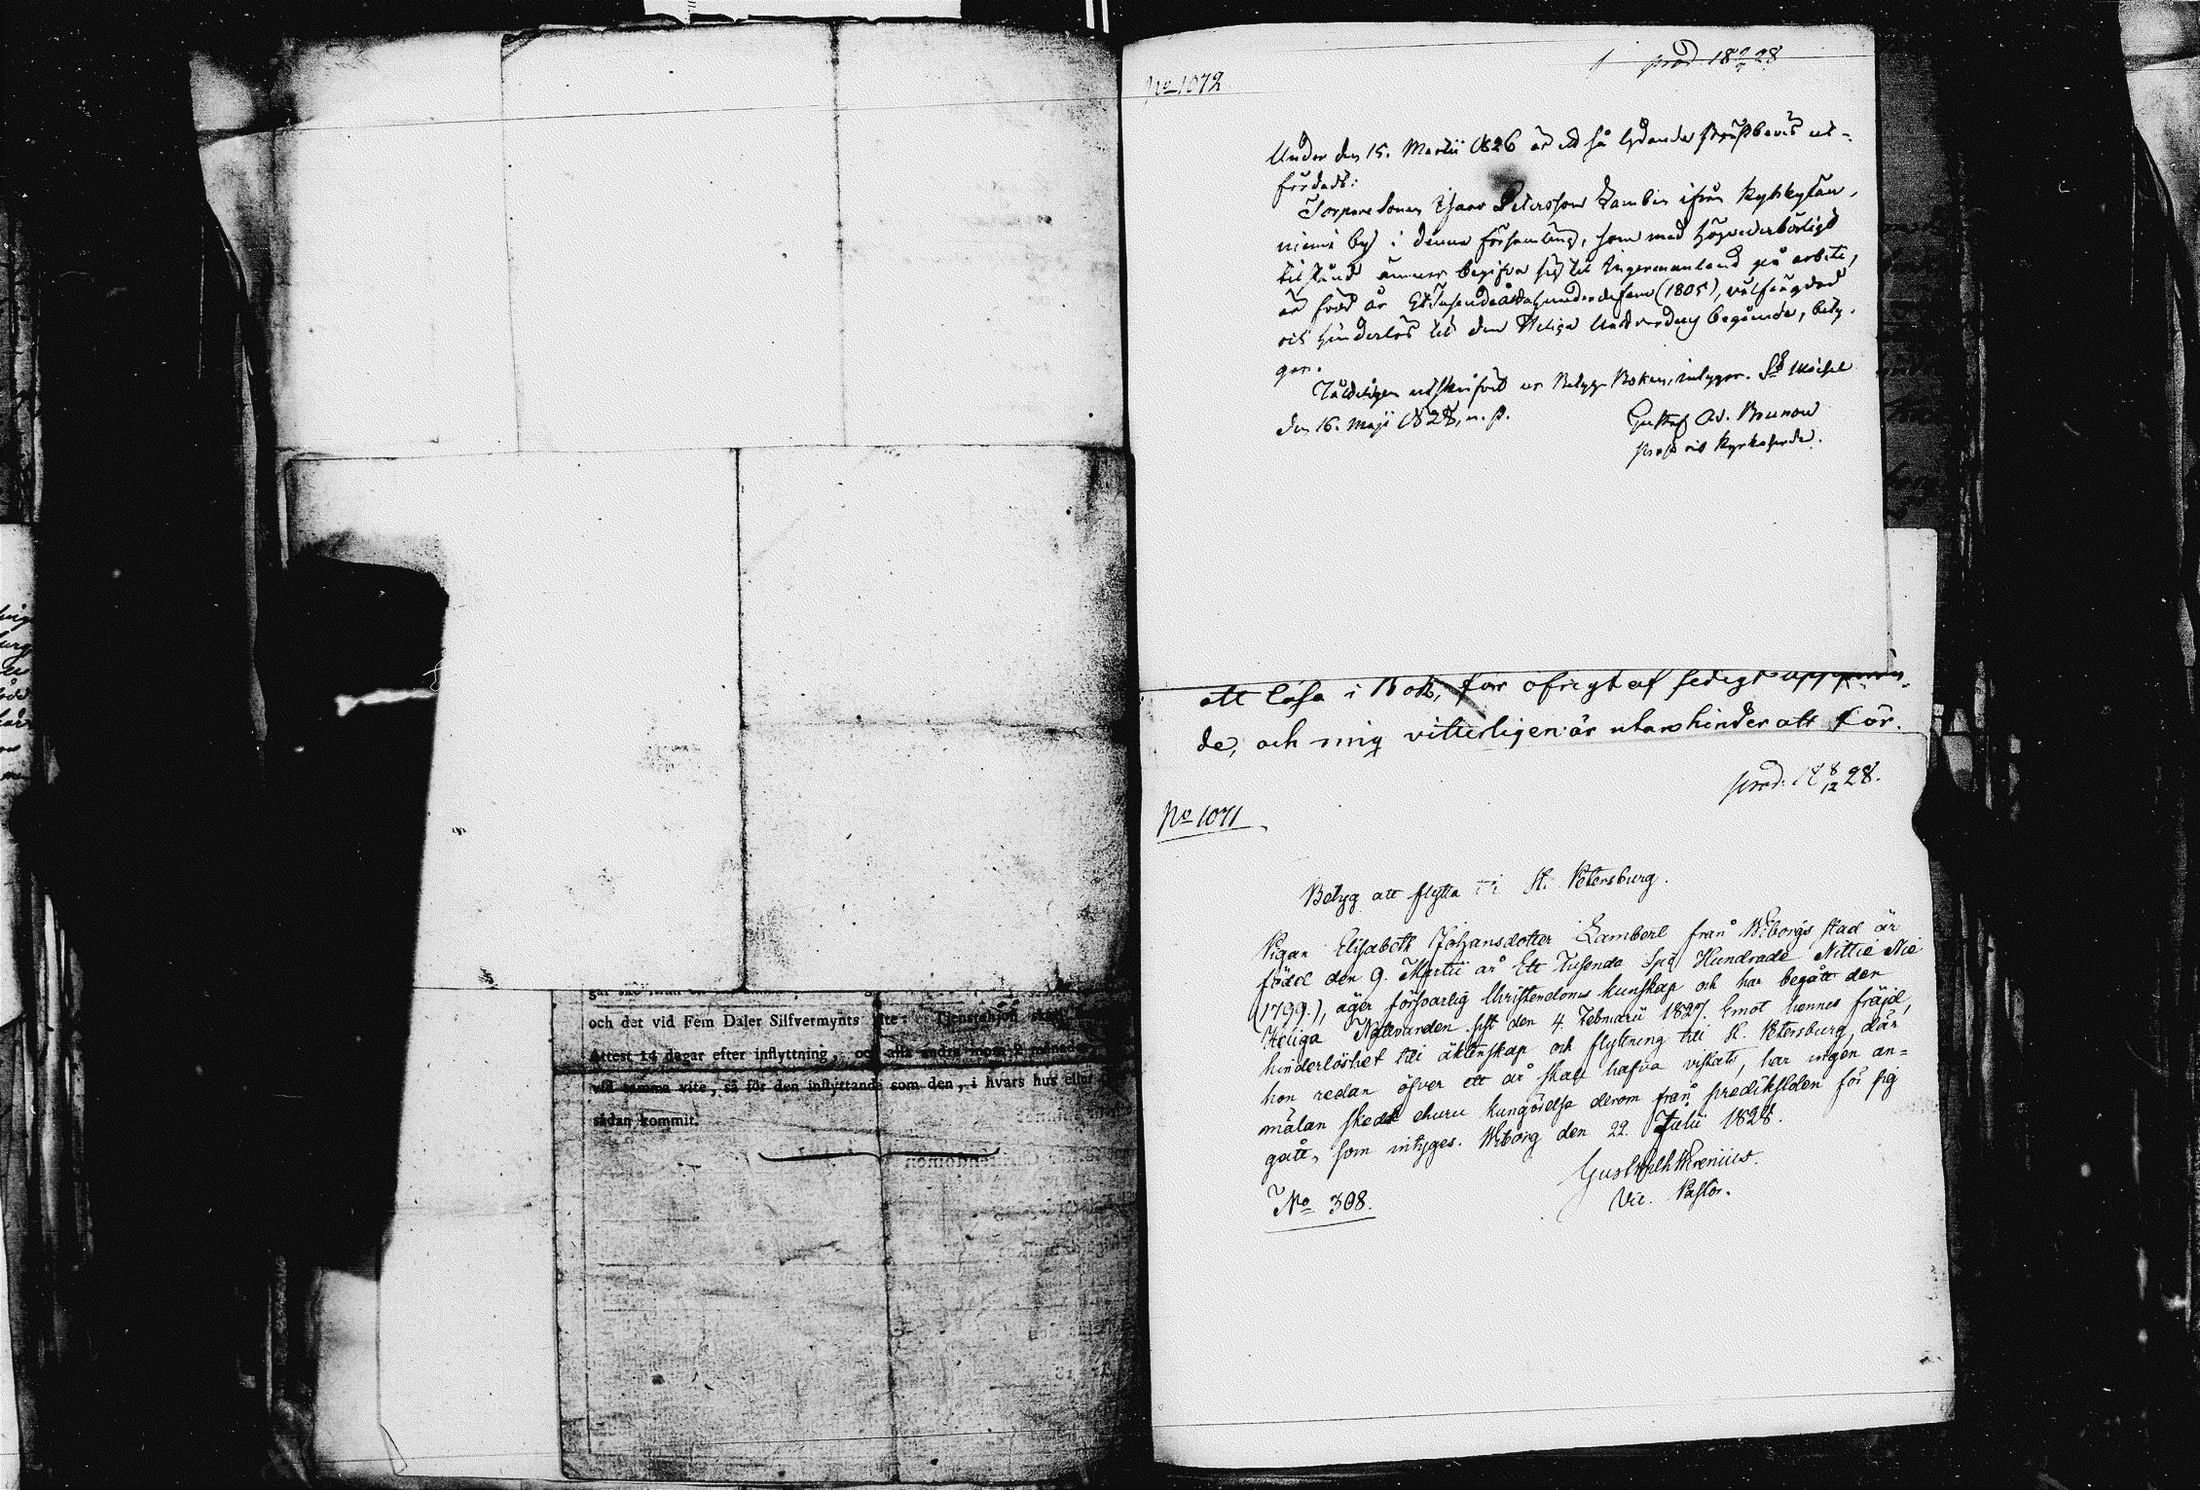 och det vid Fem Daler Silfvermynts vite: Tjenstehjon
Attest 14 dagar efter inflyttning, och alla andra inom 2 månader
vid samma vite, så för den inflyttande som den, i hvars hus eller
sådan kommit.
No 1072
prod 18 28
Under den 15. Martii 1826 är ett så lydande ut-
färdadt:
Torpare Sonen Petersson ifrån
niemi by i denna församling, som med
tilstånd ämnar begifva sig til Ingermanland på arbete,
är född år Ett Tusende åttahundrade fem (1805), välfrägdad
och hinderlös til den Heliga Nattvardens begående, bety-
gar.
utskrifvet ur Betygs Boken, intygar. St Michel
den 16. Maji 1828,
Gustaf Ad. Brunow
Prost och Kyrkoherde.
att läsa i Bok, för öfrigt af sedigt uppföran-
de, och mig vitterligen är utan hinder att för-
prod. 18 8/12 28.
No 1071
Betyg att flytta till St. Petersburg.
Pigan Elisabeth Johansdotter Lamberl från Wiborgs stad är
född den 9. Martii år Ett Tusende Sju Hundrade Nittie Nie
(1799.), äger försvarlig Christendoms kunskap och har begått den
Heliga Nattvarden sist den 4. Februarii 1827. Emot hennes fräjd,
hinderlöshet till äktenskap och flyttning till St. Petersburg, där
hon redan öfver ett år skall hafva vistats, har ingen an-
mälan skedt ehuru kungörelse derom från predikstolen för sig
gått, som intyges. Wiborg den 22. Julii 1828.
Vic. Pastor.
No 308.